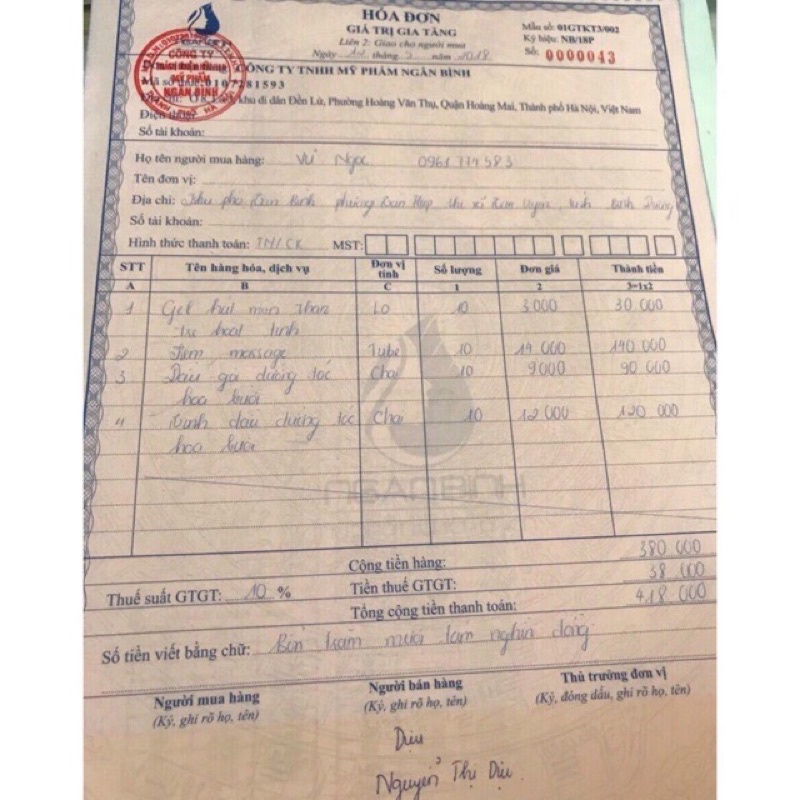 HÓA ĐƠN
GIÁ TRỊ GIA TĂNG
Liên 2: Giao cho người mua
Ngày 12 tháng 5 năm 2018
Mẫu số: 01GTKT3/002
Ký hiệu: NB/18P
Số: 0000043
CÔNG TY
MỸ PHẨM
NGÂN BÌNH
CÔNG TY TNHH MỸ PHẨM NGÂN BÌNH
Mã số thuế: 0107281593
Địa chỉ: khu di dân Đền Lừ, Phường Hoàng Văn Thụ, Quận Hoàng Mai, Thành phố Hà Nội, Việt Nam
Điện thoại:
Số tài khoản:
Họ tên người mua hàng: Vũ Ngọc 0961774583
Tên đơn vị:
Địa chỉ: Khu phố Tân Bình phường Tân Hiệp, thị xã Tân Uyên, tỉnh Bình Dương
Số tài khoản:
Hình thức thanh toán: TM/CK MST:
STT Tên hàng hóa, dịch vụ Đơn vị tính Số lượng Đơn giá Thành tiền
A B C 1 2 3=1x2
1 Gel hút mụn than Lo 10 3.000 30 000
hoạt tính
2 Kem massage Tube 10 14 000 140 000
3 Dầu gội dưỡng tóc Chai 10 9000 90 000
hoa bưởi
4 Tinh dầu dưỡng tóc Chai 10 12 000 120 000
hoa bưởi
NGANBINH
Cộng tiền hàng: 380 000
Thuế suất GTGT: 10 % Tiền thuế GTGT: 38 000
Tổng cộng tiền thanh toán: 418 000
Số tiền viết bằng chữ: Bốn trăm mười tám nghìn đồng
Người mua hàng Người bán hàng Thủ trưởng đơn vị
(Ký, ghi rõ họ, tên) (Ký, ghi rõ họ, tên) (Ký, đóng dấu, ghi rõ họ, tên)
Dịu
Nguyễn Thị Dịu